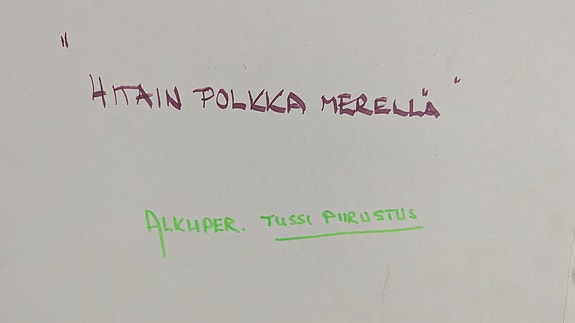 "HITAIN POLKKA MERELLÄ"
ALKUPER. TUSSI PIIRUSTUS